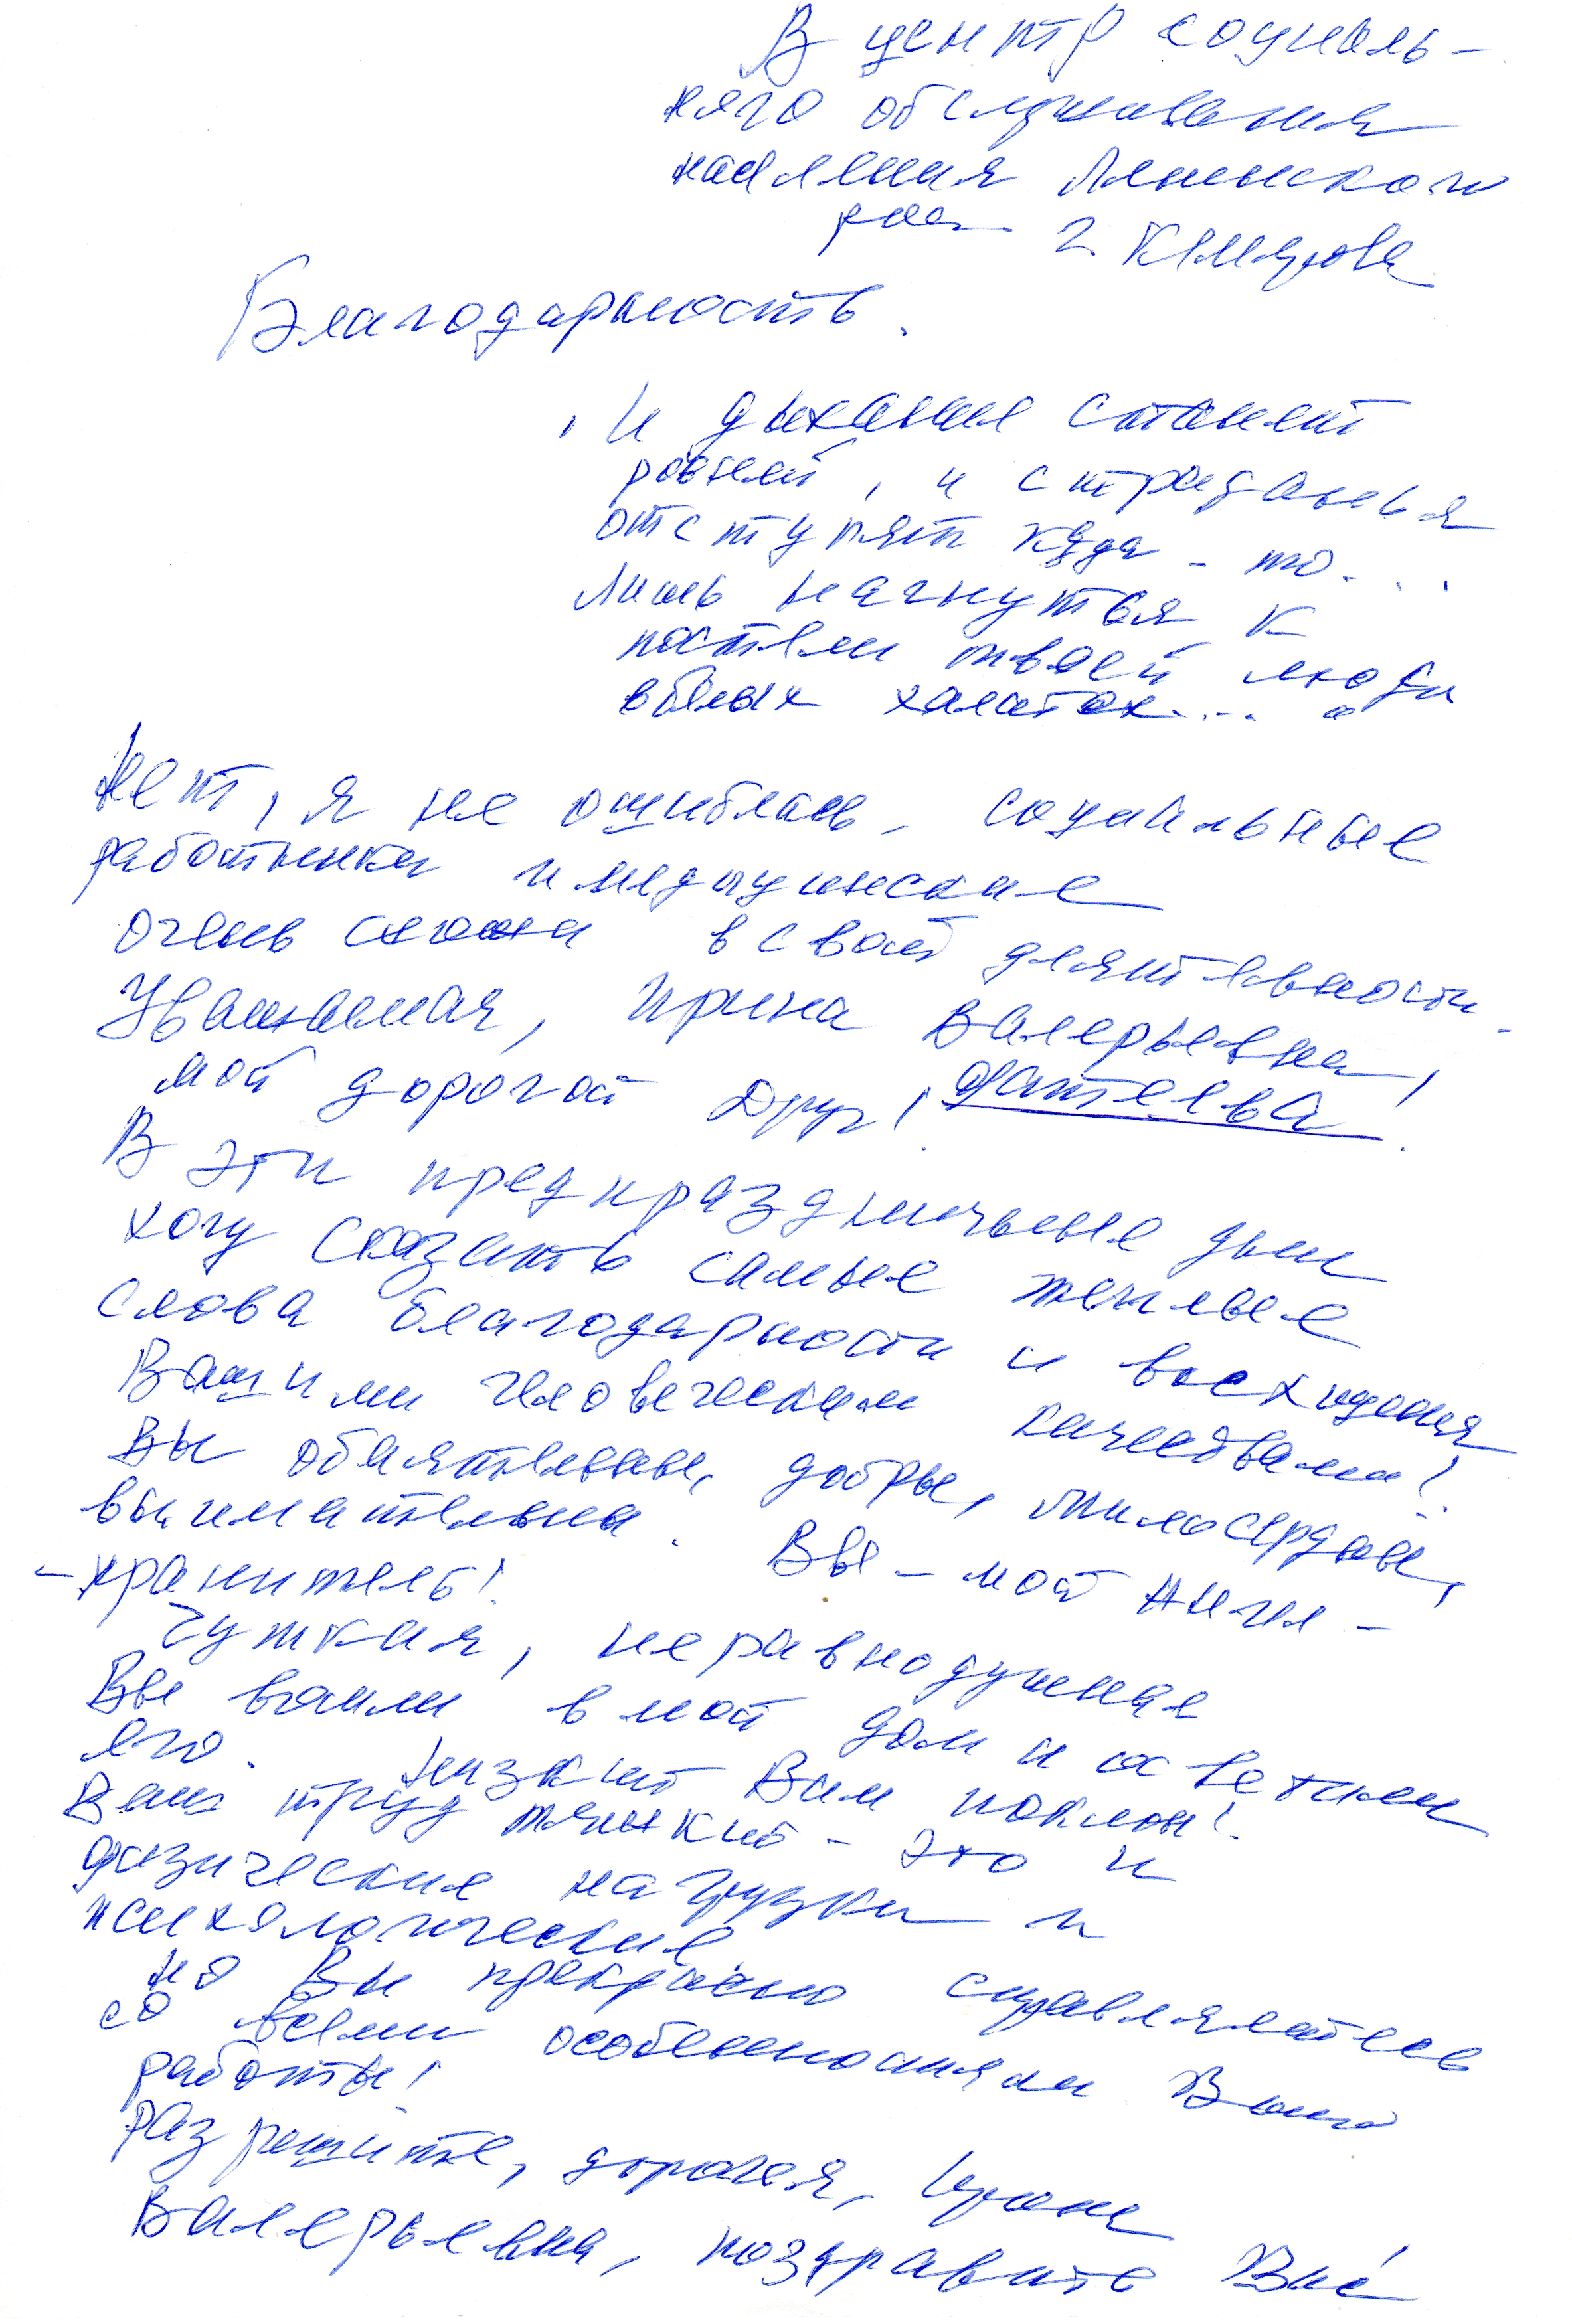 В центр социаль-
ного обслуживания
населения Ленинского
рай. г. Кемерова
Благодарность.
„И дыхание станет
ровней, и страдания
отступят куда-то...
Лишь нагнутся к
постели твоей люди
в белых халатах..."
Нет, я не ошиблась, социальные
работники и медицинские
очень схожи в своей деятельности.
Уважаемая, Ирина Валерьевна!
мой дорогой Друг! Фатеева!
В эти предпраздничные дни
хочу сказать самые теплые
слова благодарности и восхищения
Вашими человеческими качествами!
Вы обаятельны, добры, милосердны,
внимательны. Вы – мой Ангел-
-хранитель!
Чуткая, неравнодушная
Вы вошли в мой дом и осветили
его. Низкий Вам поклон!
Ваш труд тяжкий – это и
физические нагрузки и
психологические,
но Вы прекрасно справляетесь
со всеми особенностями Вашей
работы!
Разрешите, дорогая, Ирина
Валерьевна, поздравить Вас